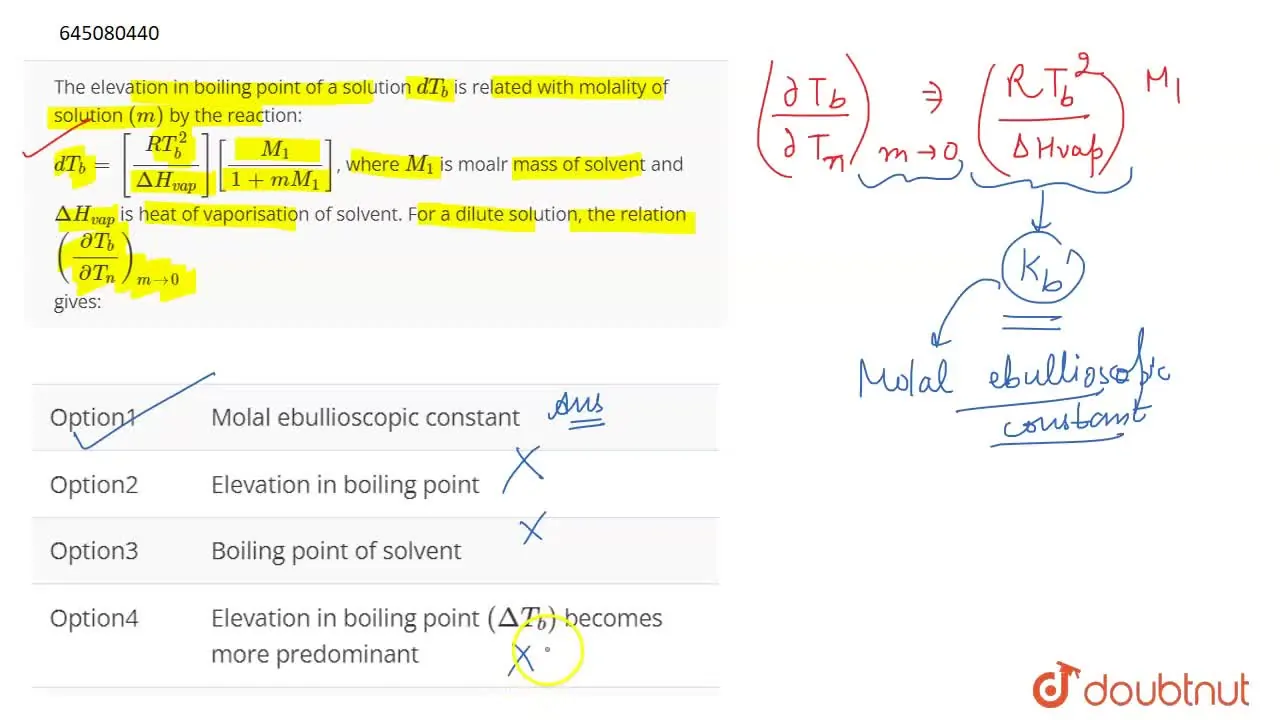 645080440
The elevation in boiling point of a solution dT_b is related with molality of
solution (m) by the reaction:
dT_b = [RT_b^2 / ΔH_vap] [M_1 / 1 + mM_1], where M_1 is moalr mass of solvent and
ΔH_vap is heat of vaporisation of solvent. For a dilute solution, the relation
(∂T_b / ∂T_n)_m→0
gives:
Option1 Molal ebullioscopic constant Ans
Option2 Elevation in boiling point X
Option3 Boiling point of solvent X
Option4 Elevation in boiling point (ΔT_b) becomes
more predominant X
(∂T_b / ∂T_n)_m→0 ⇒ (RT_b^2 / ΔHvap) M_1
K_b
Molal ebullioscopic
constant
doubtnut